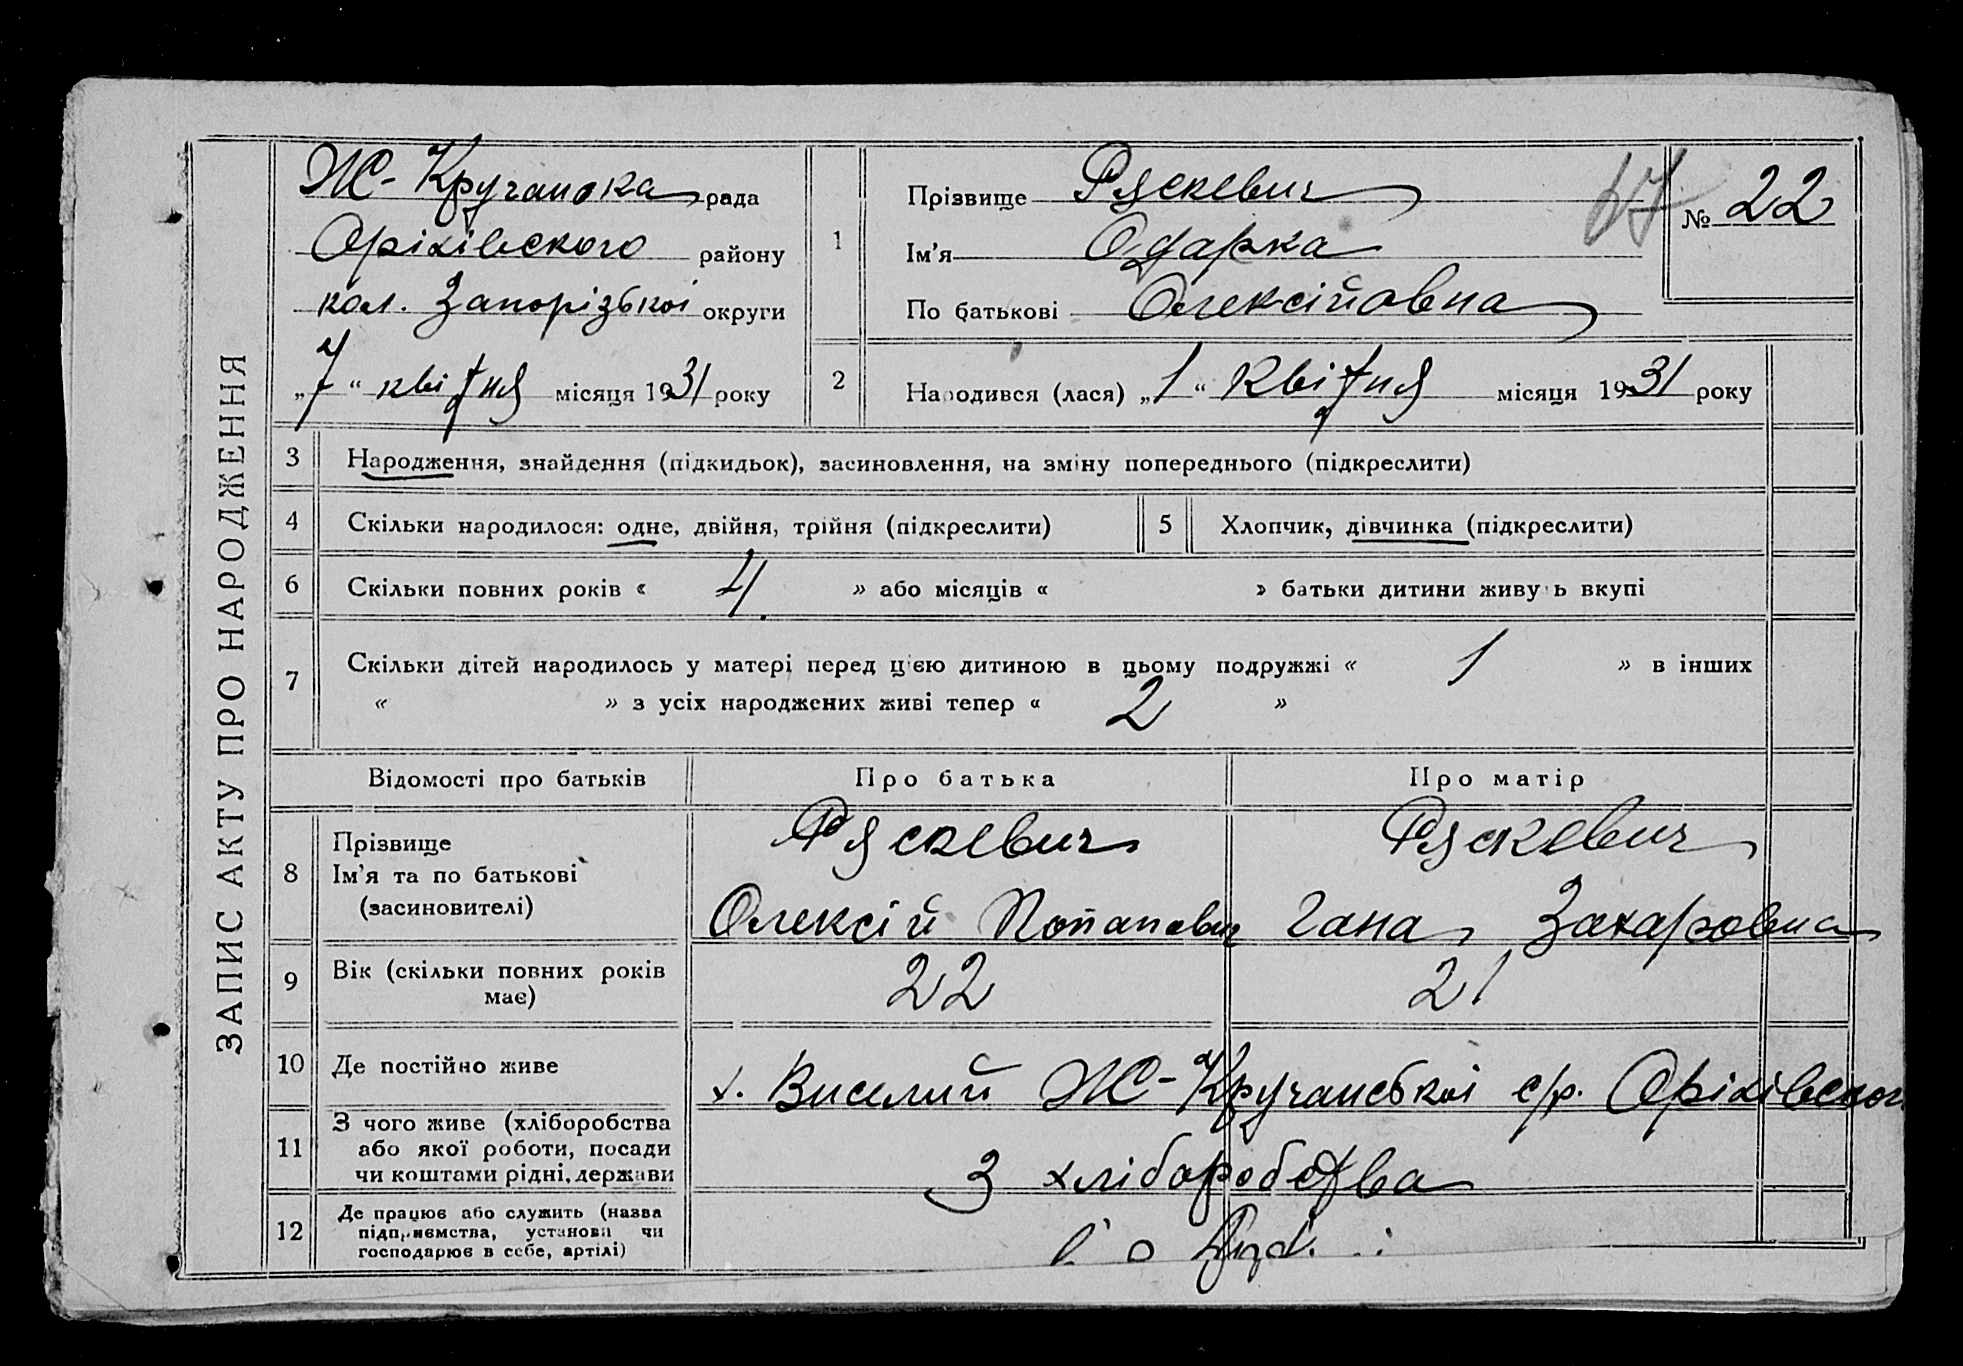 ЗАПИС АКТУ ПРО НАРОДЖЕННЯ
Ж-Кручанська рада
Оріхівського району
кол. Запорізької округи
„7“ квітня місяця 1931 року
1
Прізвище Ряскевич
Ім'я Одарка
По батькові Олексійовна
17
№ 22
2
Народився (лася) „1“ Квітня місяця 1931 року
3 Народження, знайдення (підкидьок), засиновлення, на зміну попереднього (підкреслити)
4 Скільки народилося: одне, двійня, трійня (підкреслити)
5 Хлопчик, дівчинка (підкреслити)
6 Скільки повних років « 4 » або місяців « » батьки дитини живуть вкупі
7 Скільки дітей народилось у матері перед цією дитиною в цьому подружжі « 1 » в інших
« » з усіх народжених живі тепер « 2 »
Відомості про батьків Про батька Про матір
8 Прізвище
Ім'я та по батькові
(засиновителі)
Ряскевич Ряскевич
Олексій Потапович Гана Захаровна
9 Вік (скільки повних років
має)
22 21
10 Де постійно живе
х. Виселий Ж-Кручанської с/р. Оріхівського
11 З чого живе (хліборобства
або якої роботи, посади
чи коштами рідні, держави
З хліборобства
12 Де працює або служить (назва
підприємства, установи чи
господарює в себе, артілі)